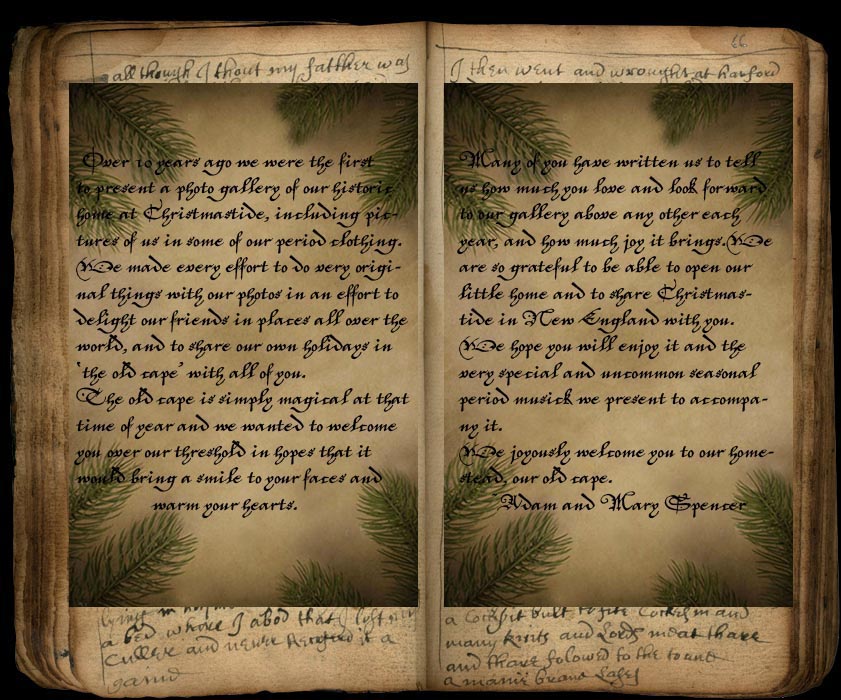 all though I thout my father was
Over 10 years ago we were the first
to present a photo gallery of our historic
home at Christmastide, including pic-
tures of us in some of our period clothing.
We made every effort to do very origi-
nal things with our photos in an effort to
delight our friends in places all over the
world, and to share our own holidays in
'the old cape' with all of you.
The old cape is simply magical at that
time of year and we wanted to welcome
you over our threshold in hopes that it
would bring a smile to your faces and
warm your hearts.
a bed whare I abod that I
and never it a
66
I then went and wrought at harford
Many of you have written us to tell
us how much you love and look forward
to our gallery above any other each
year, and how much joy it brings. We
are so grateful to be able to open our
little home and to share Christmas-
tide in New England with you.
We hope you will enjoy it and the
very special and uncommon seasonal
period musick we present to accompa-
ny it.
We joyously welcome you to our home-
stead, our old cape.
Adam and Mary Spencer
a built to and
many knits and Lords meat thare
and thare folowed to the
a